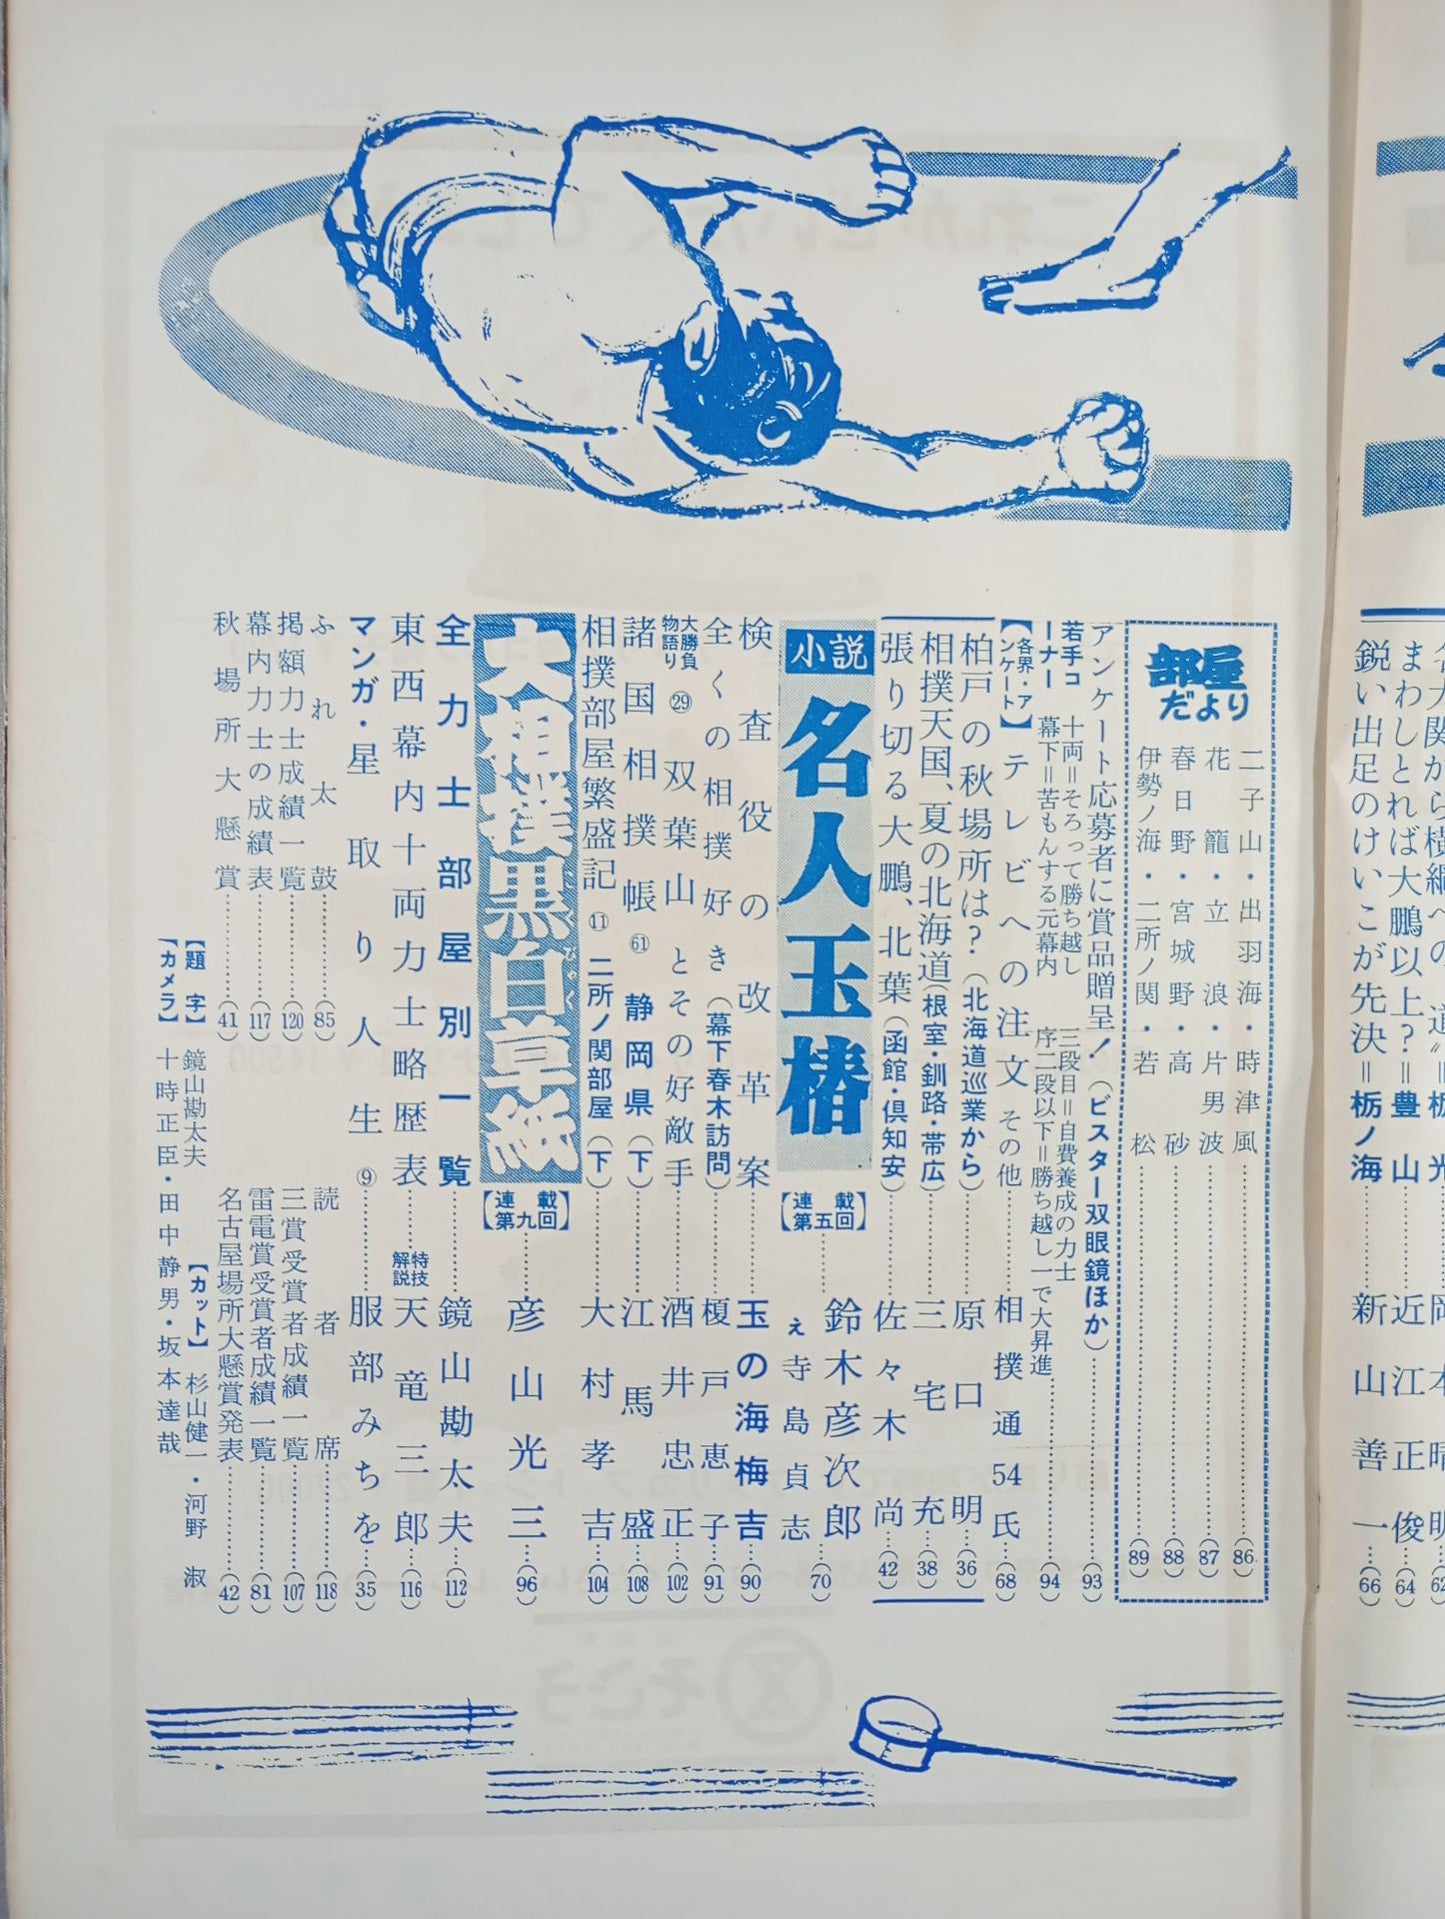 鋭い出足のけいこが先決＝栃ノ海……新山善一…(66)
部屋だより
二子山・出羽海・時津風……(86)
花籠・立浪・片男波……(87)
春日野・宮城野・高砂……(88)
伊勢ノ海・二所ノ関・若松……(89)
アンケート応募者に賞品贈呈！（ビスター双眼鏡ほか）……(93)
若手コーナー
十両＝そろって勝ち越し
幕下＝苦もんする元幕内
三段目＝自費養成の力士
序二段以下＝勝ち越し一で大昇進……(94)
【各界・アンケート】テレビへの注文その他……相撲通54氏…(68)
柏戸の秋場所は？（北海道巡業から）……原口明…(36)
相撲天国、夏の北海道（根室・釧路・帯広）……三宅充…(38)
張り切る大鵬、北葉（函館・倶知安）……佐々木尚…(42)
小説 名人玉椿【連載第五回】……鈴木彦次郎 え 寺島貞志…(70)
検査役の改革案……玉の海梅吉…(90)
全くの相撲好き（幕下春木訪問）……榎戸恵子…(91)
大勝負物語り㉙双葉山とその好敵手……酒井忠正…(102)
諸国相撲帳㉛静岡県（下）……江馬盛…(108)
相撲部屋繁盛記⑪二所ノ関部屋（下）……大村孝吉…(104)
大相撲黒白草紙【連載第九回】……彦山光三…(96)
全力士部屋別一覧……鏡山勘太夫…(112)
東西幕内十両力士略歴表……特技解説 天竜三郎…(116)
マンガ・星取り人生⑨……服部みちを…(35)
ふれ太鼓……(85)
読者席……(118)
掲額力士成績一覧……(120)
三賞受賞者成績一覧……(107)
幕内力士の成績表……(117)
雷電賞受賞者成績一覧……(81)
秋場所大懸賞……(41)
名古屋場所大懸賞発表……(42)
【題字】鏡山勘太夫
【カット】杉山健一・河野淑
【カメラ】十時正臣・田中静男・坂本達哉